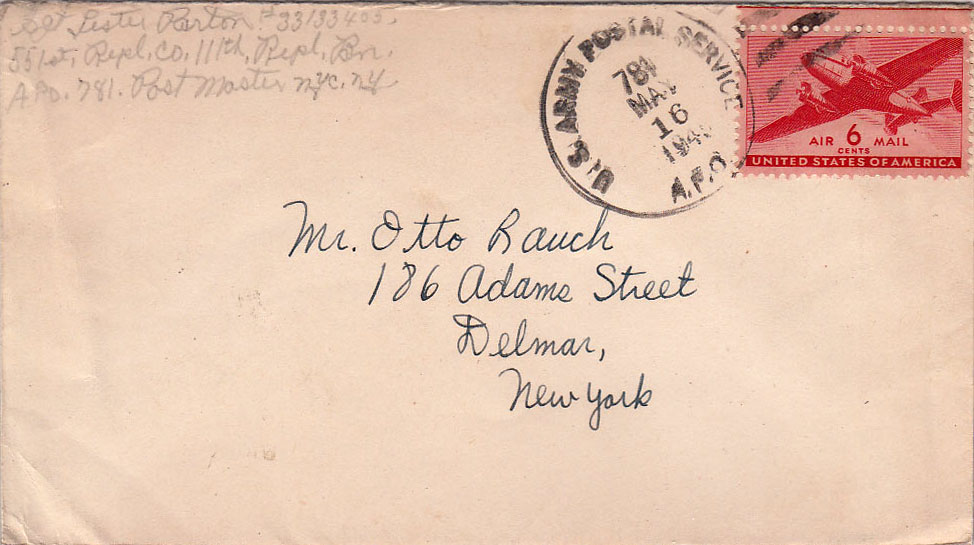 Lester Barton #33133405.
551st, Repl. Co. 111th, Repl, Bn.
APO. 781. Post Master NYC. NY.
U.S. ARMY POSTAL SERVICE
781
MAY
16
194
A.P.O.
AIR 6 MAIL
CENTS
UNITED STATES OF AMERICA
Mr. Otto Rauch
186 Adams Street
Delmar,
New York